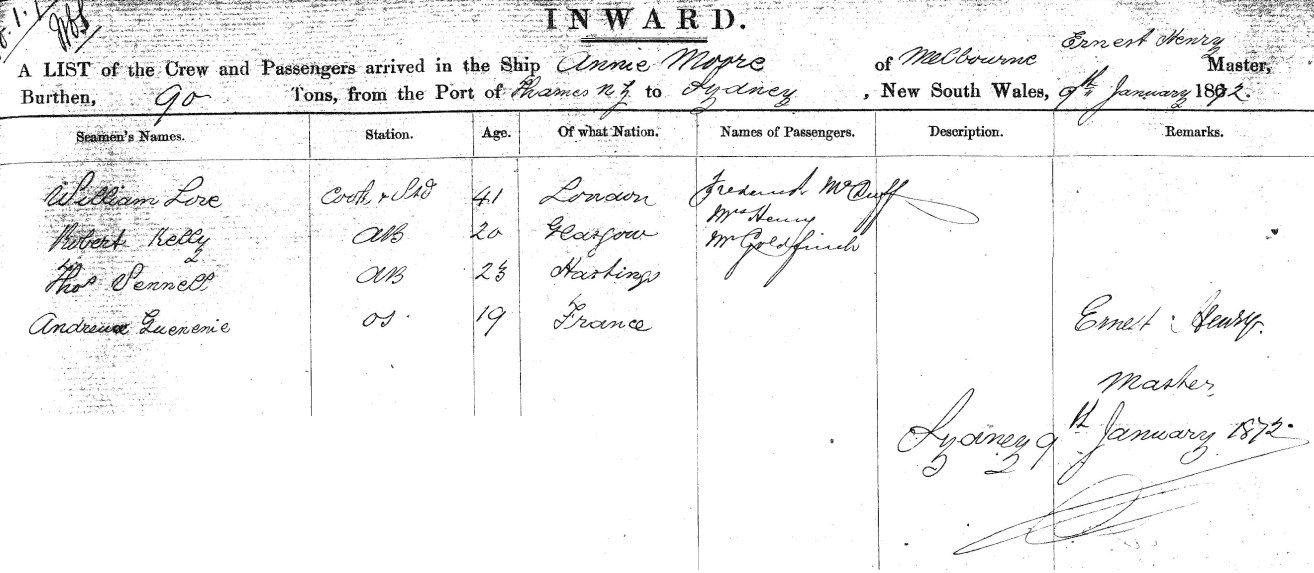 INWARD.
Ernest Henry
A LIST of the Crew and Passengers arrived in the Ship Annie Moore of Melbourne Master,
Burthen, 90 Tons, from the Port of Thames N Z to Sydney , New South Wales, 9th January 1872.
Seamen's Names. Station. Age. Of what Nation. Names of Passengers. Description. Remarks.
William Lore Cook & Std 41 London Frederick McDuff
Mrs Henry
Robert Kelly AB 20 Glasgow Mr Goldfinch
Thos Pennell AB 23 Hastings
Andrew OS. 19 France Ernest Henry.
Master,
Sydney 9th January 1872.